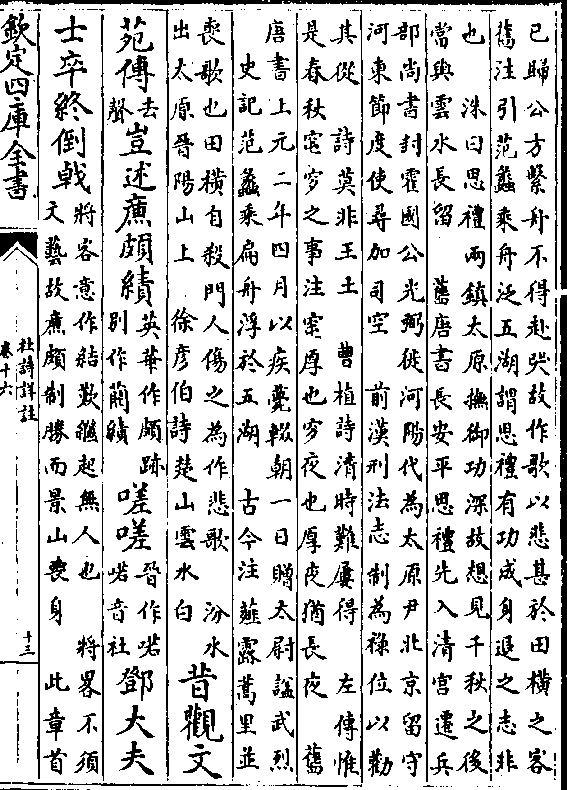 已歸公方繫舟不得赴喪故作歌以悲甚於田橫之客
舊注引范蠡乘舟泛五湖謂思禮有功成身退之志非
也　洙曰思禮兩鎮太原撫御功深故想見千秋之後
當與雲水長留　舊唐書長安平思禮先入清宮遷兵
部尚書封霍國公光弼徙河陽代為太原尹北京留守
河東節度使尋加司空　前漢刑法志制為祿位以勸
其從　詩莫非王土　曹植詩清時難屢得　左傳惟
是春秋窀穸之事注窀厚也穸夜也厚夜猶長夜　舊
唐書上元二年四月以疾薨輟朝一日贈太尉諡武烈
史記范蠡乘扁舟浮於五湖　古今注薤露蒿里並
喪歌也田橫自殺門人傷之為作悲歌　汾水
出太原晉陽山上　徐彥伯詩楚山雲水白
昔觀文
苑傳
去
聲
豈述廉頗績
英華作頗跡
別作藺績
嗟嗟
晉作喏
喏音社
鄧大夫
士卒終倒戟
將客意作結歎繼起無人也　將畧不須
文藝故廉頗制勝而景山喪身　此章首
欽定四庫全書
杜詩詳註
卷十六
十三